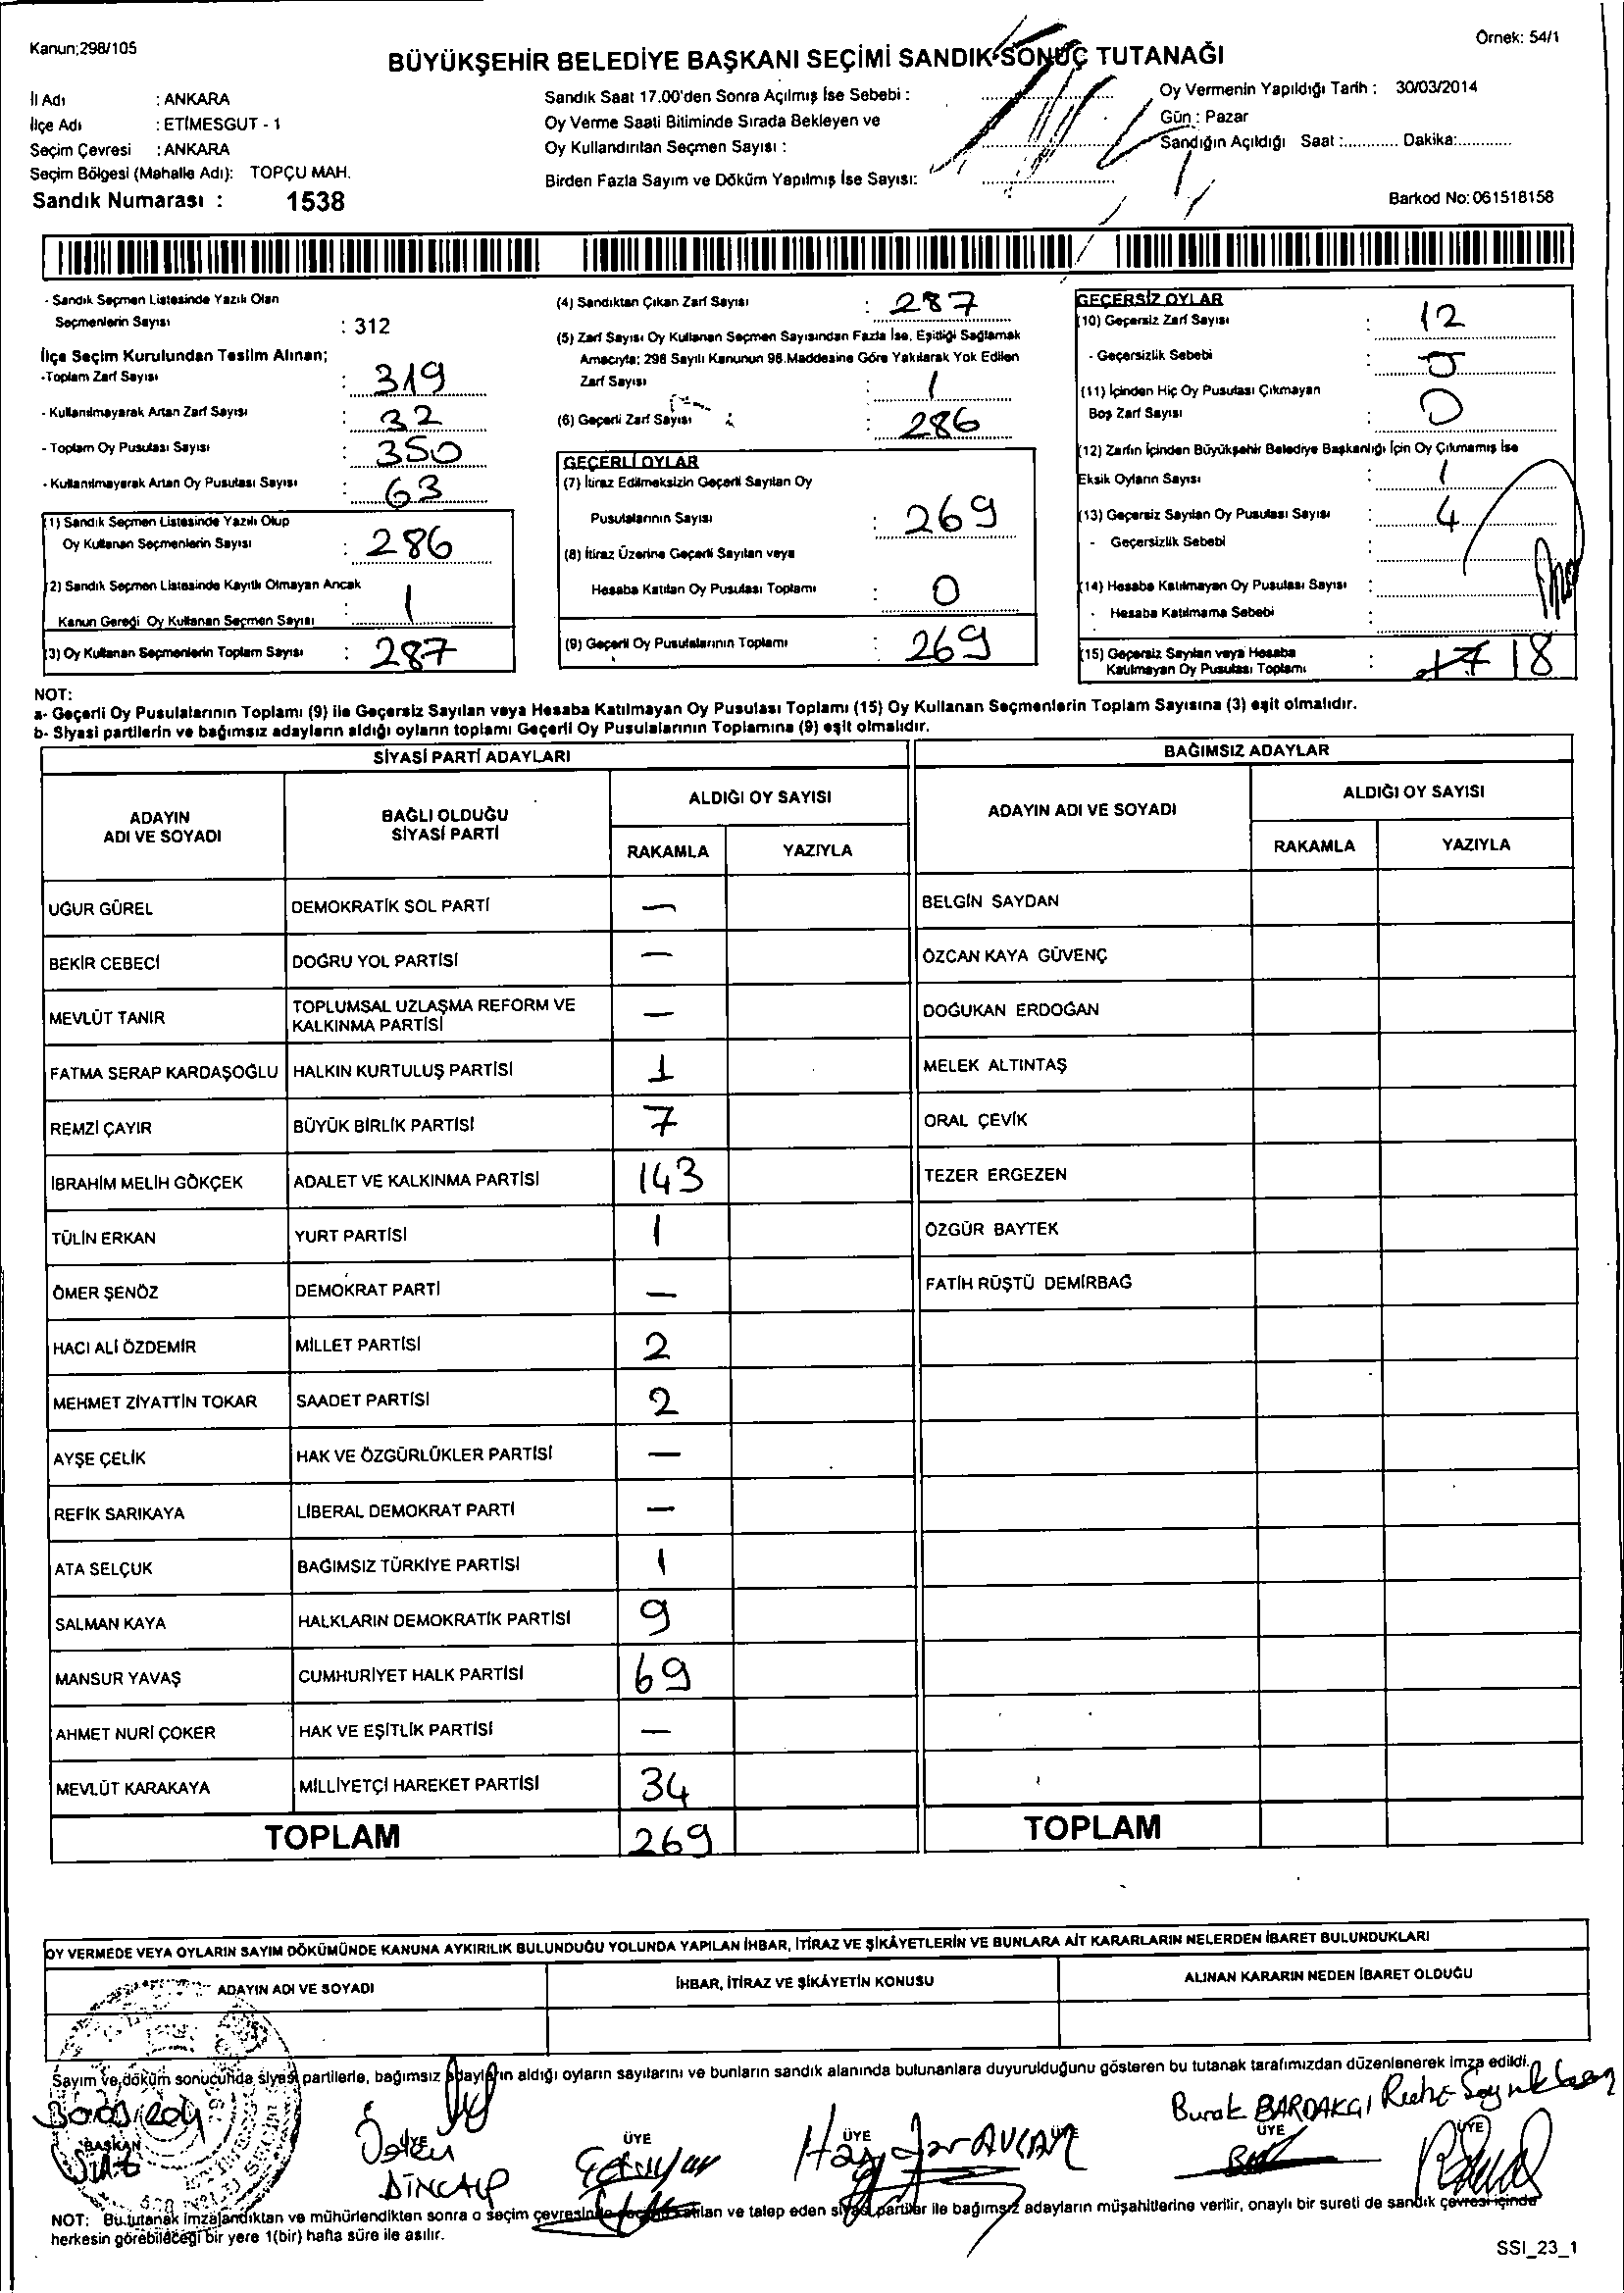 Kanun;298/105
Örnek: 54/1
BÜYÜKŞEHİR BELEDİYE BAŞKANI SEÇİMİ SANDIK SONUÇ TUTANAĞI
İl Adı : ANKARA
İlçe Adı : ETİMESGUT - 1
Seçim Çevresi : ANKARA
Seçim Bölgesi (Mahalle Adı): TOPÇU MAH.
Sandık Numarası : 1538
Sandık Saat 17.00'den Sonra Açılmış İse Sebebi :
Oy Verme Saati Bitiminde Sırada Bekleyen ve
Oy Kullandırılan Seçmen Sayısı :
Birden Fazla Sayım ve Döküm Yapılmış İse Sayısı:
Oy Vermenin Yapıldığı Tarih : 30/03/2014
Gün : Pazar
Sandığın Açıldığı Saat :............ Dakika:............
Barkod No: 061518158
- Sandık Seçmen Listesinde Yazılı Olan
Seçmenlerin Sayısı : 312
İlçe Seçim Kurulundan Teslim Alınan;
-Toplam Zarf Sayısı : 319
- Kullanılmayarak Artan Zarf Sayısı : 32
- Toplam Oy Pusulası Sayısı : 350
- Kullanılmayarak Artan Oy Pusulası Sayısı : 63
(1) Sandık Seçmen Listesinde Yazılı Olup
Oy Kullanan Seçmenlerin Sayısı : 286
(2) Sandık Seçmen Listesinde Kayıtlı Olmayan Ancak
Kanun Gereği Oy Kullanan Seçmen Sayısı : 1
(3) Oy Kullanan Seçmenlerin Toplam Sayısı : 287
(4) Sandıktan Çıkan Zarf Sayısı : 287
(5) Zarf Sayısı Oy Kullanan Seçmen Sayısından Fazla İse, Eşitliği Sağlamak
Amacıyla; 298 Sayılı Kanunun 98.Maddesine Göre Yakılarak Yok Edilen
Zarf Sayısı : 1
(6) Geçerli Zarf Sayısı : 286
GEÇERLİ OYLAR
(7) İtiraz Edilmeksizin Geçerli Sayılan Oy
Pusulalarının Sayısı : 269
(8) İtiraz Üzerine Geçerli Sayılan veya
Hesaba Katılan Oy Pusulası Toplamı : 0
(9) Geçerli Oy Pusulalarının Toplamı : 269
GEÇERSİZ OYLAR
(10) Geçersiz Zarf Sayısı : 12
- Geçersizlik Sebebi :
(11) İçinden Hiç Oy Pusulası Çıkmayan
Boş Zarf Sayısı : 0
(12) Zarfın İçinden Büyükşehir Belediye Başkanlığı İçin Oy Çıkmamış İse
Eksik Oyların Sayısı : 1
(13) Geçersiz Sayılan Oy Pusulası Sayısı : 4
- Geçersizlik Sebebi :
(14) Hesaba Katılmayan Oy Pusulası Sayısı :
- Hesaba Katılmama Sebebi :
(15) Geçersiz Sayılan veya Hesaba
Katılmayan Oy Pusulası Toplamı : 17 18
NOT:
a- Geçerli Oy Pusulalarının Toplamı (9) ile Geçersiz Sayılan veya Hesaba Katılmayan Oy Pusulası Toplamı (15) Oy Kullanan Seçmenlerin Toplam Sayısına (3) eşit olmalıdır.
b- Siyasi partilerin ve bağımsız adayların aldığı oyların toplamı Geçerli Oy Pusulalarının Toplamına (9) eşit olmalıdır.
SİYASİ PARTİ ADAYLARI
ADAYIN ADI VE SOYADI
BAĞLI OLDUĞU SİYASİ PARTİ
ALDIĞI OY SAYISI
RAKAMLA YAZIYLA
UĞUR GÜREL DEMOKRATİK SOL PARTİ —
BEKİR CEBECİ DOĞRU YOL PARTİSİ —
MEVLÜT TANIR TOPLUMSAL UZLAŞMA REFORM VE KALKINMA PARTİSİ —
FATMA SERAP KARDAŞOĞLU HALKIN KURTULUŞ PARTİSİ 1
REMZİ ÇAYIR BÜYÜK BİRLİK PARTİSİ 7
İBRAHİM MELİH GÖKÇEK ADALET VE KALKINMA PARTİSİ 143
TÜLİN ERKAN YURT PARTİSİ 1
ÖMER ŞENÖZ DEMOKRAT PARTİ —
HACI ALİ ÖZDEMİR MİLLET PARTİSİ 2
MEHMET ZİYATTİN TOKAR SAADET PARTİSİ 2
AYŞE ÇELİK HAK VE ÖZGÜRLÜKLER PARTİSİ —
REFİK SARIKAYA LİBERAL DEMOKRAT PARTİ —
ATA SELÇUK BAĞIMSIZ TÜRKİYE PARTİSİ 1
SALMAN KAYA HALKLARIN DEMOKRATİK PARTİSİ 9
MANSUR YAVAŞ CUMHURİYET HALK PARTİSİ 69
AHMET NURİ ÇOKER HAK VE EŞİTLİK PARTİSİ —
MEVLÜT KARAKAYA MİLLİYETÇİ HAREKET PARTİSİ 34
TOPLAM 269
BAĞIMSIZ ADAYLAR
ADAYIN ADI VE SOYADI
ALDIĞI OY SAYISI
RAKAMLA YAZIYLA
BELGİN SAYDAN
ÖZCAN KAYA GÜVENÇ
DOĞUKAN ERDOĞAN
MELEK ALTINTAŞ
ORAL ÇEVİK
TEZER ERGEZEN
ÖZGÜR BAYTEK
FATİH RÜŞTÜ DEMİRBAĞ
TOPLAM
OY VERMEDE VEYA OYLARIN SAYIM DÖKÜMÜNDE KANUNA AYKIRILIK BULUNDUĞU YOLUNDA YAPILAN İHBAR, İTİRAZ VE ŞİKÂYETLERİN VE BUNLARA AİT KARARLARIN NELERDEN İBARET BULUNDUKLARI
ADAYIN ADI VE SOYADI
İHBAR, İTİRAZ VE ŞİKÂYETİN KONUSU
ALINAN KARARIN NEDEN İBARET OLDUĞU
Sayım ve döküm sonucunda siyasi partilerle, bağımsız adayların aldığı oyların sayılarını ve bunların sandık alanında bulunanlara duyurulduğunu gösteren bu tutanak tarafımızdan düzenlenerek imza edildi.
Burak BARDAKÇI
BAŞKAN ÜYE ÜYE ÜYE ÜYE ÜYE
DİNÇALP
NOT: Bu tutanak imzalandıktan ve mühürlendikten sonra o seçim çevresinde ve talep eden siyasi partiler ile bağımsız adayların müşahitlerine verilir, onaylı bir sureti de sandık çevresi içinde
herkesin görebileceği bir yere 1(bir) hafta süre ile asılır.
SSI_23_1